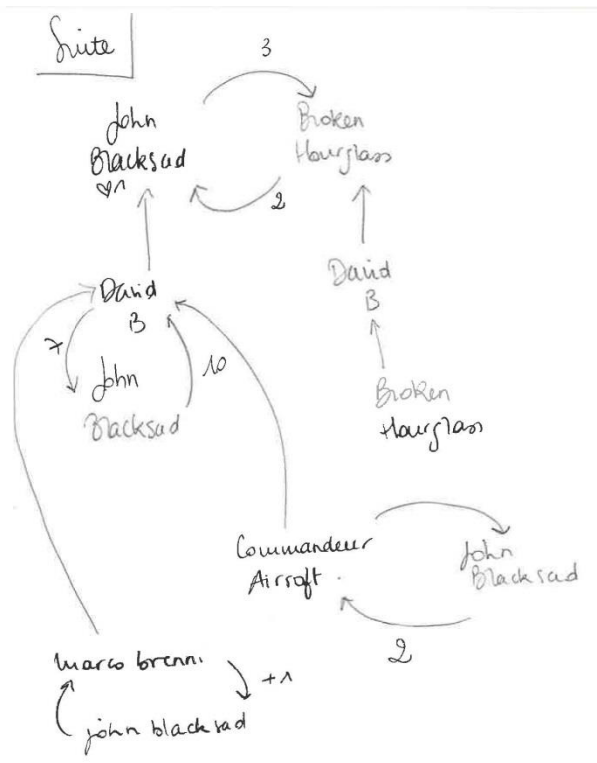 Suite
3
John
Blacksad
♡1
Broken
Hourglass
2
David
B
David
B
7
10
John
Blacksad
Broken
Hourglass
Commandeur
Airsoft.
John
Blacksad
2
marco brenni
+1
john blacksad